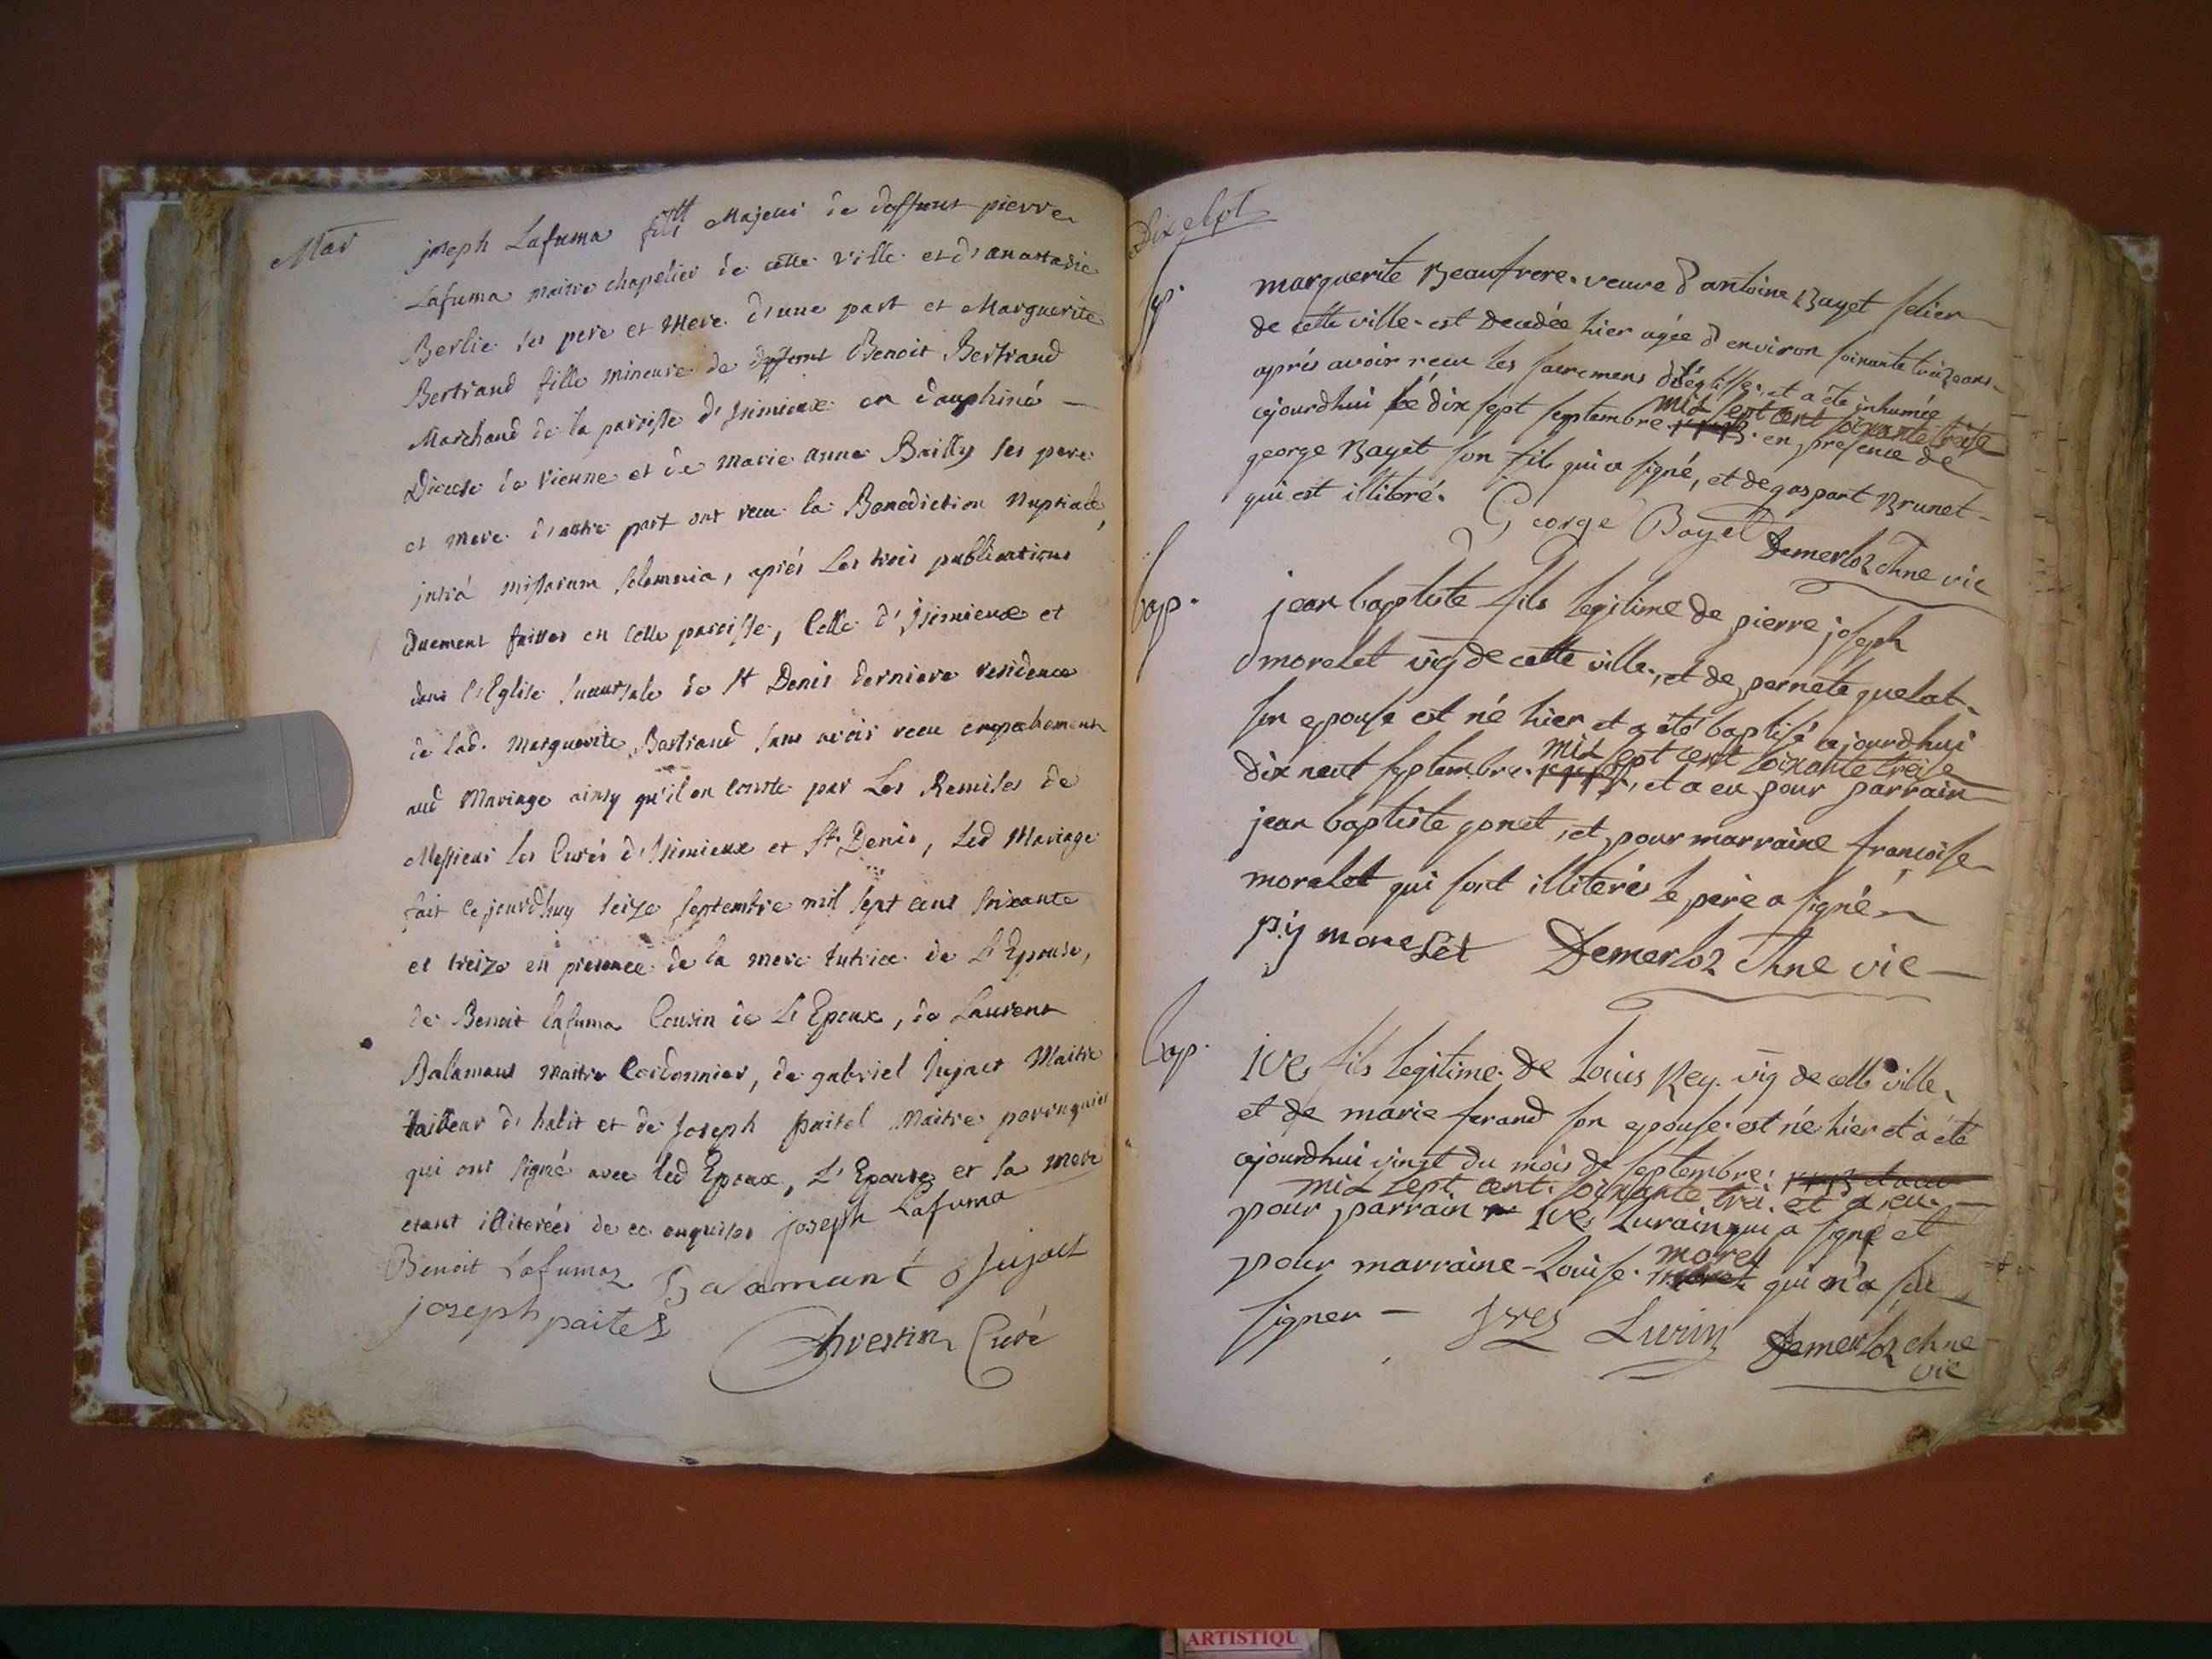 Mar
joseph Lafuma fils Majeur de deffunt pierre
Lafuma maitre chapelier de cette ville et d'anastasie
Berlie ses pere et Mere d'une part et Marguerite
Bertrand fille mineure de deffunt Benoit Bertrand
Marchand de la paroisse d'Isimieux en dauphiné —
Diocese de Vienne et de Marie anne Bailly ses pere
et Mere d'autre part ont recu la Benediction Nuptiale,
intrà missarum solemnia, aprés Les trois publications
duement faittes en cette paroisse, Celle d'Isimieux et
dans l'Eglise succursale de St Denis derniere residence
de lad. Marguerite Bertrand sans avoir recu empechement
aud Mariage ainsy qu'il en conste par Les Remises de
Messieurs les Curés d'Isimieux et St Denis, Led Mariage
fait ce jourdhuy seize septembre mil sept cent soixante
et treize en presence de la mere tutrice de L'Epouse,
de Benoit lafuma Cousin de L'Epoux, de Laurent
Balamant maitre Cordonnier, de gabriel Jujact Maitre
tailleur d'habit et de Joseph paitel Maitre perruquier
qui ont signé avec led Epoux, L'Epouse et sa mere
etant illiterées de ce enquises joseph Lafuma
Benoit Lafumaz Balamant g Jujact
joseph paitel
Curé
Dix sept
sep.
marguerite Beaufrere. veuve d'antoine Bayet selier
de cette ville. est decedée hier agée d'environ soixante treize ans.
aprés avoir reçu les sacremens de l'églisse. et a été inhumée
cejourdhui le dix sept septembre mil sept cent soixante treise 1773. en presence de
george Bayet son fils qui a signé, et de gaspart Brunet —
qui est illiteré. George Bayet
Demerloz chne vic
bap.
jean baptiste fils legitime de pierre joseph
morelet vig de cette ville. et de pernete quelat
son epouse est né hier et a été baptisé cejourdhui
dix neuf septembre. mil sept cent soixante treise 1773, et a eu pour parrain
jean baptiste gonet, et pour marraine françoise
morelet qui sont illiterés le pere a signé
p.j morelet Demerloz chne vic —
bap.
ive fils legitime de Louis Rey. vig de cette ville,
et de marie ferand son epouse. est né hier et a été
cejourdhui vingt du mois de septembre. 1773 et a eu
mil sept cent. soixante trei. et a eu. —
pour parrain ive Lurain qui a signé et
pour marraine - Louise. morel qui n'a su
signer — Yves Lurin Demerloz chne
vic
ARTISTIQU